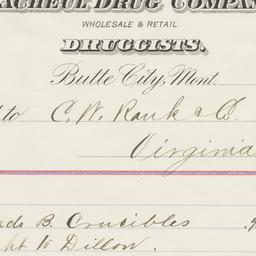 ACHEUL DRUG COMPAN
WHOLESALE & RETAIL
DRUGGISTS.
Butte City, Mont.
to C. W. Rank & Co
Virginia
ads B. Crucibles
ht to Dillon.